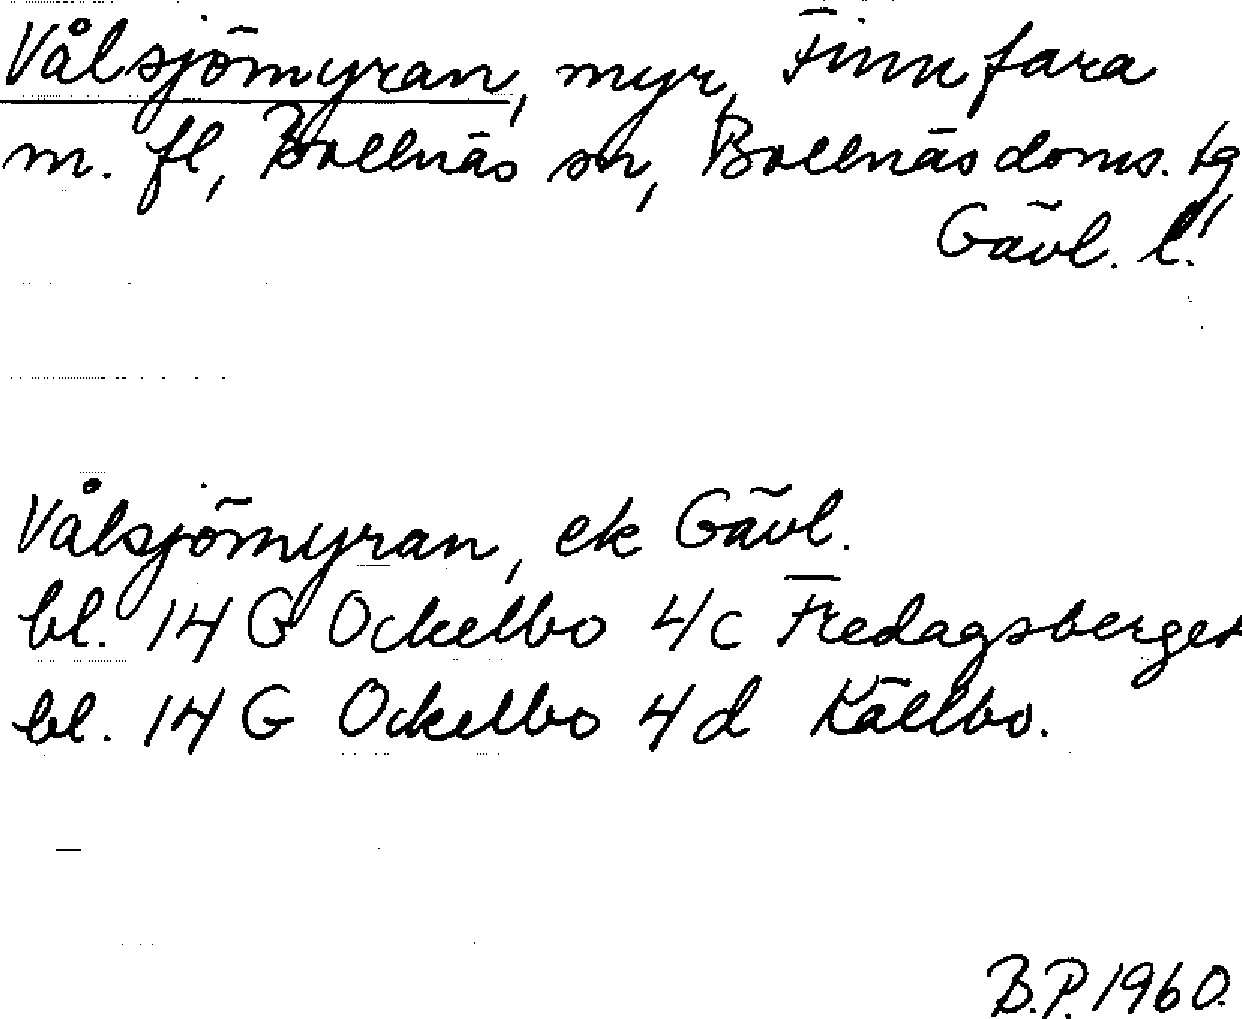 Vålsjömyran, myr, Finnfara
m. fl, Bollnäs sn, Bollnäs doms. tg,
Gävl. l.
Vålsjömyran, ek Gävl.
bl. 14 G Ockelbo 4c Fredagsberget
bl. 14 G Ockelbo 4d Källbo.
B.P. 1960.